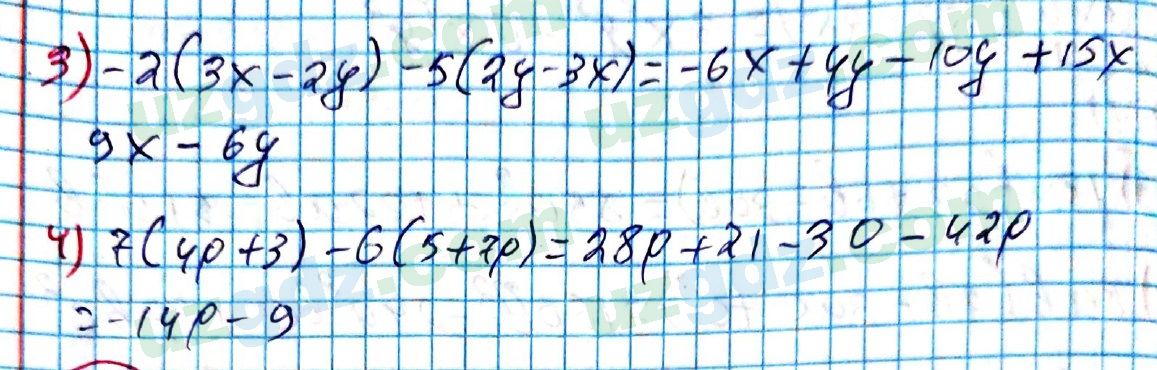 3) -2(3x-2y)-5(2y-3x)=-6x+4y-10y+15x
9x-6y
4) 7(4p+3)-6(5+7p)=28p+21-30-42p
=-14p-9
uzgdz.com
uzgdz.com
uzgdz.com
uzgdz.com